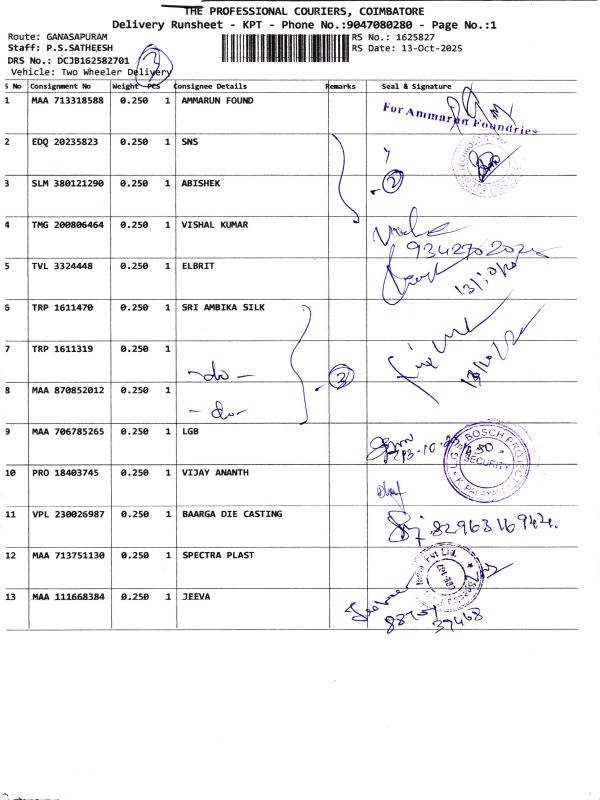 THE PROFESSIONAL COURIERS, COIMBATORE
Delivery Runsheet - KPT - Phone No.:9047080280 - Page No.:1
Route: GANASAPURAM
RS No.: 1625827
Staff: P.S.SATHEESH
RS Date: 13-Oct-2025
DRS No.: DCJB162582701
Vehicle: Two Wheeler Delivery
S No Consignment No Weight PCS Consignee Details Remarks Seal & Signature
1 MAA 713318588 0.250 1 AMMARUN FOUND
For Ammarun Foundries
2 EDQ 20235823 0.250 1 SNS
3 SLM 380121290 0.250 1 ABISHEK
2
4 TMG 200806464 0.250 1 VISHAL KUMAR
5 TVL 3324448 0.250 1 ELBRIT
6 TRP 1611470 0.250 1 SRI AMBIKA SILK
7 TRP 1611319 0.250 1
-do-
3
8 MAA 870852012 0.250 1
-do-
9 MAA 706785265 0.250 1 LGB
BOSCH PROJECT
SECURITY
10 PRO 18403745 0.250 1 VIJAY ANANTH
11 VPL 230026987 0.250 1 BAARGA DIE CASTING
12 MAA 713751130 0.250 1 SPECTRA PLAST
Pvt Ltd.
13 MAA 111668384 0.250 1 JEEVA